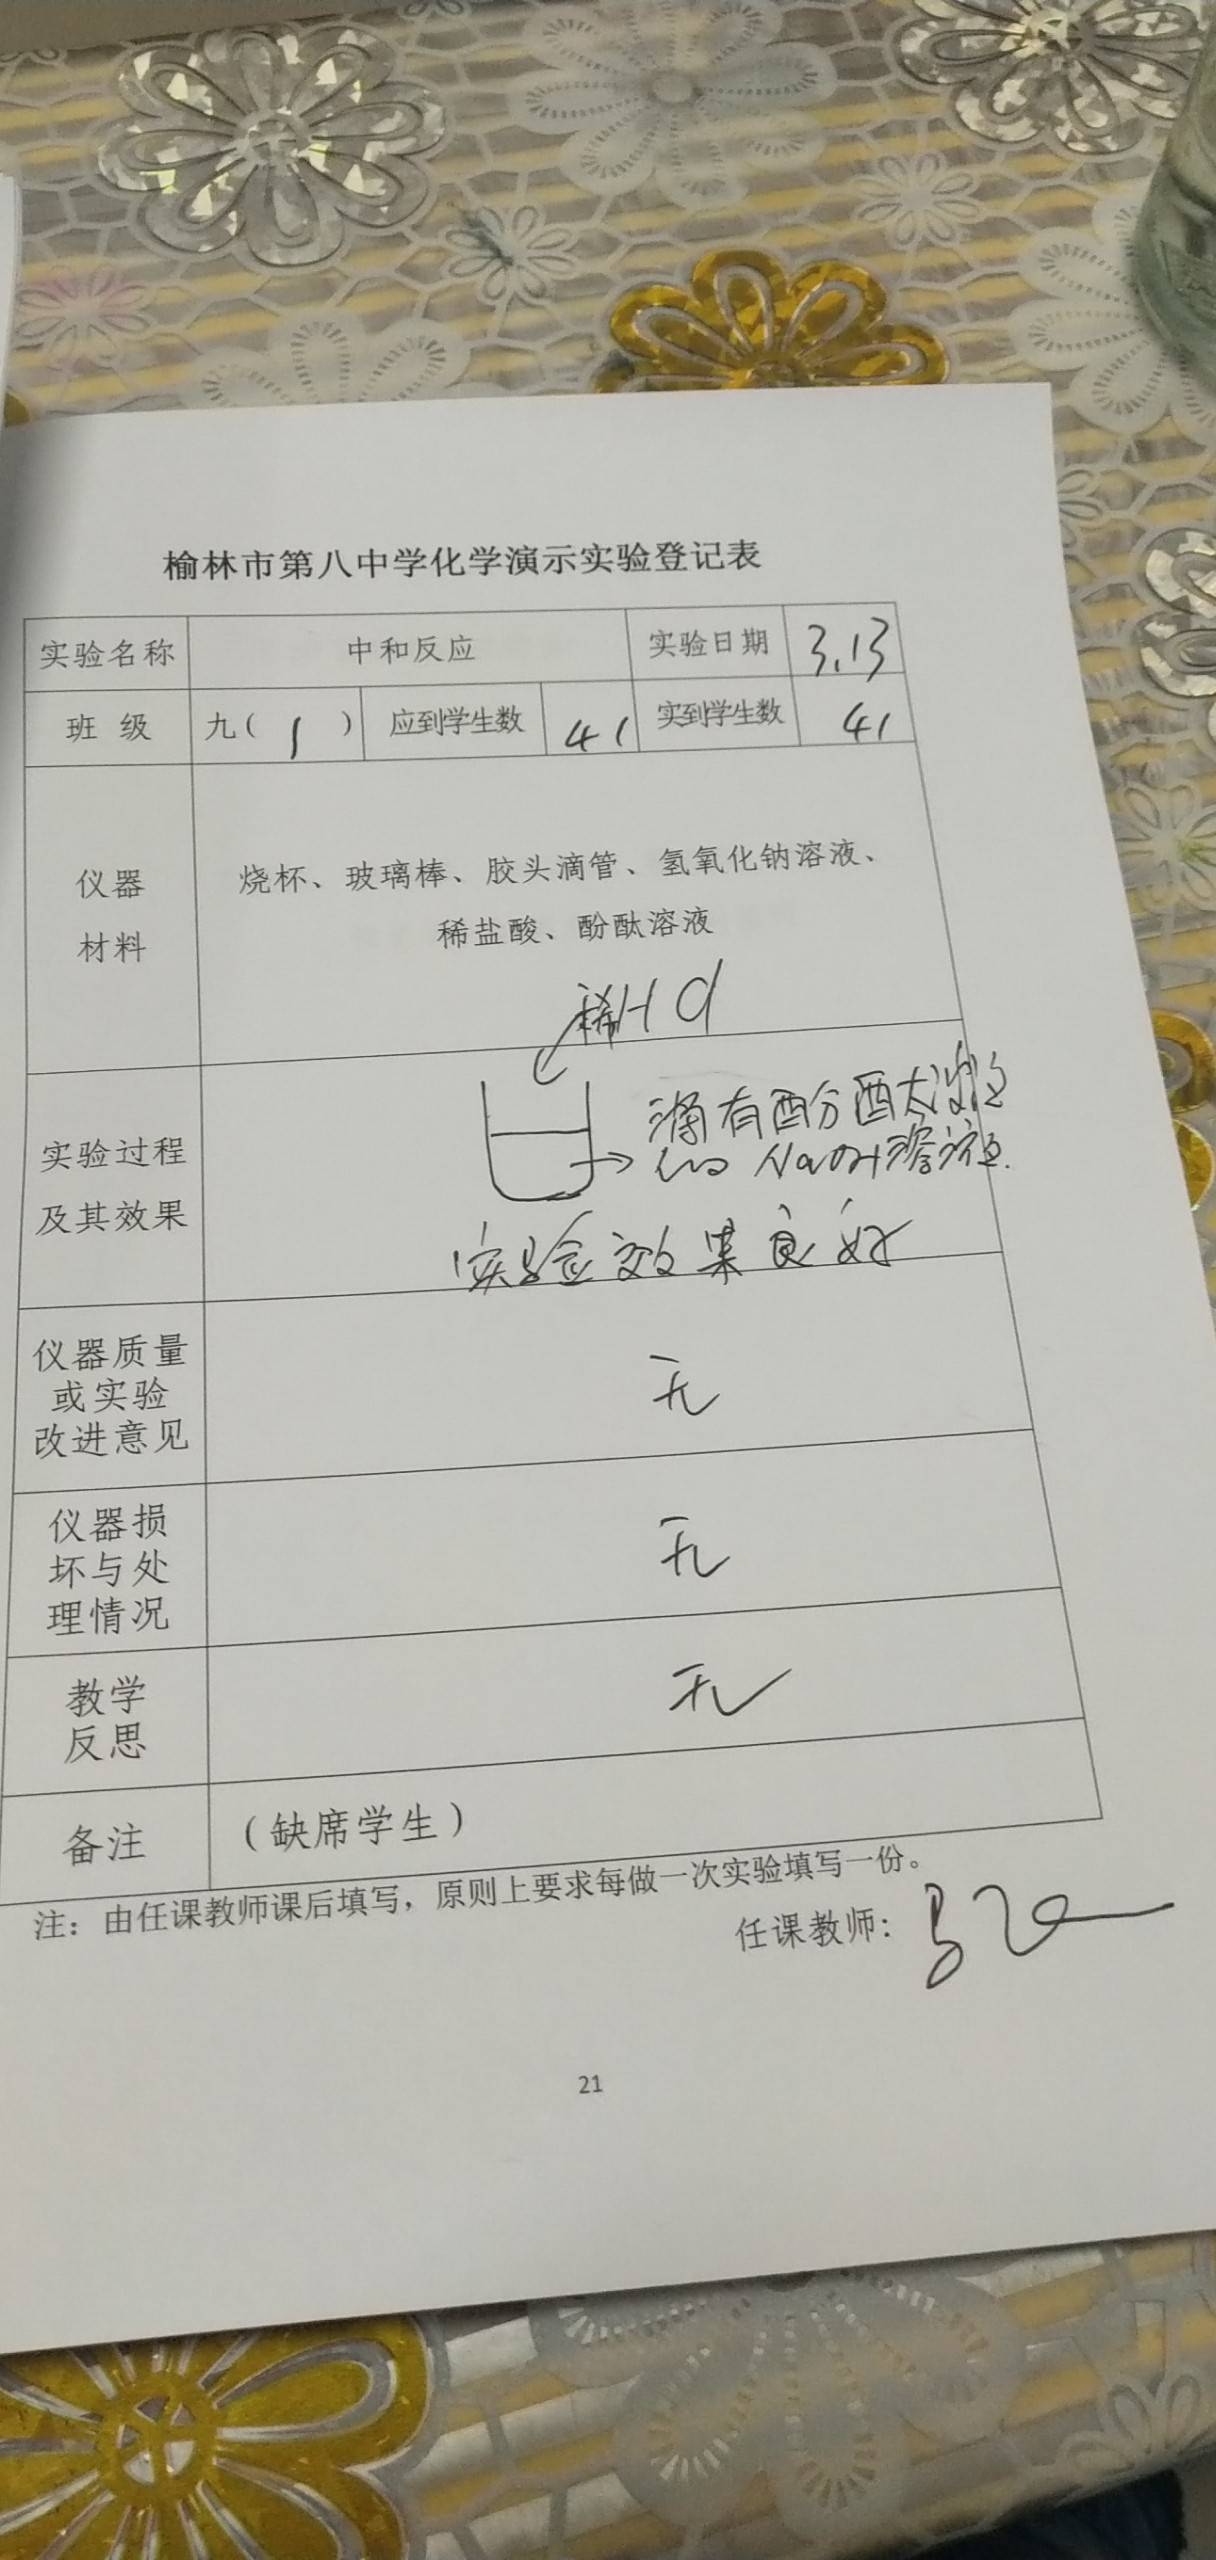 榆林市第八中学化学演示实验登记表
实验名称 中和反应 实验日期 3.13
班 级 九( 1 ) 应到学生数 41 实到学生数 41
仪器
材料
烧杯、玻璃棒、胶头滴管、氢氧化钠溶液、
稀盐酸、酚酞溶液
稀HCl
实验过程
及其效果
滴有酚酞溶液
NaOH溶液.
实验效果良好
仪器质量
或实验
改进意见
无
仪器损
坏与处
理情况
无
教学
反思
无
备注 (缺席学生)
注：由任课教师课后填写，原则上要求每做一次实验填写一份。
任课教师：
21